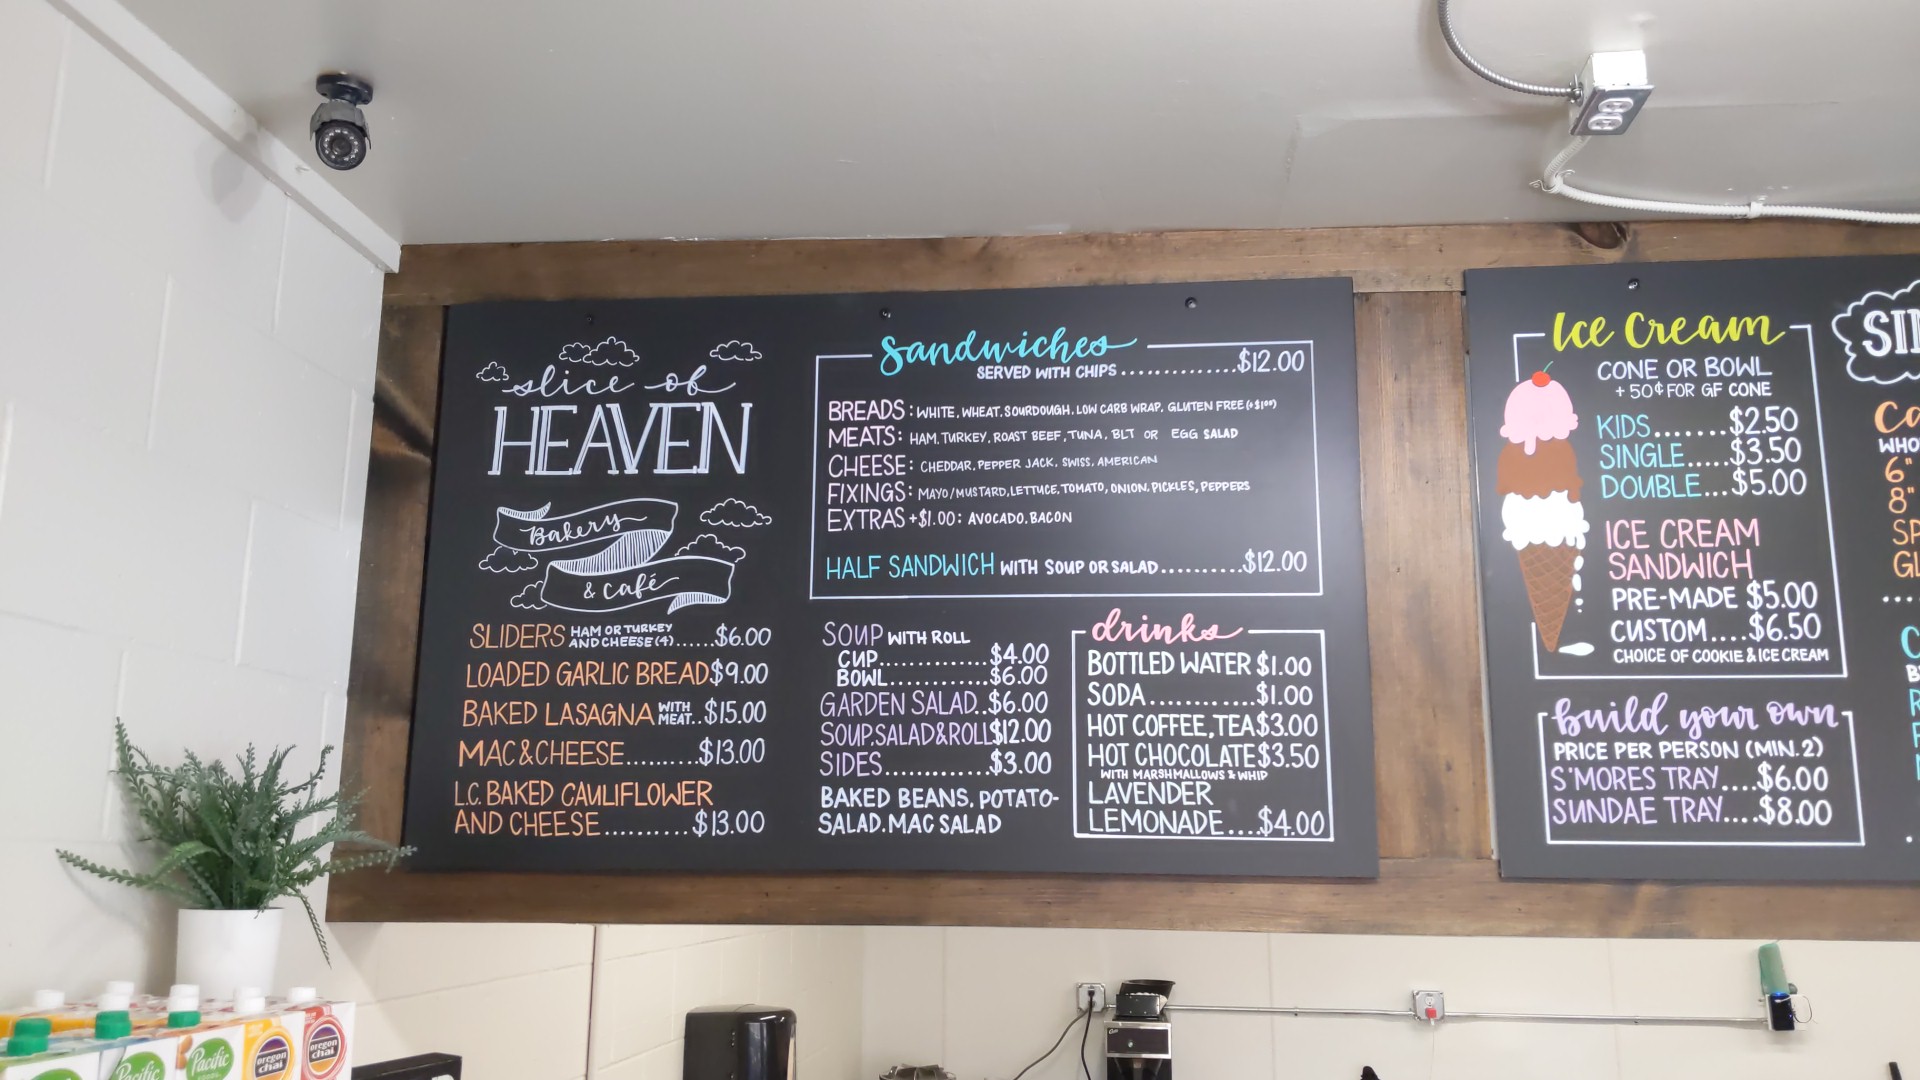 slice of
HEAVEN
Bakery
& Café
SLIDERS HAM OR TURKEY AND CHEESE (4)......$6.00
LOADED GARLIC BREAD $9.00
BAKED LASAGNA WITH MEAT..$15.00
MAC & CHEESE..........$13.00
L.C. BAKED CAULIFLOWER
AND CHEESE.........$13.00
Sandwiches
SERVED WITH CHIPS..............$12.00
BREADS: WHITE, WHEAT, SOURDOUGH, LOW CARB WRAP, GLUTEN FREE (+$1⁰⁰)
MEATS: HAM, TURKEY, ROAST BEEF, TUNA, BLT OR EGG SALAD
CHEESE: CHEDDAR, PEPPER JACK, SWISS, AMERICAN
FIXINGS: MAYO/MUSTARD, LETTUCE, TOMATO, ONION, PICKLES, PEPPERS
EXTRAS +$1.00: AVOCADO, BACON
HALF SANDWICH WITH SOUP OR SALAD..........$12.00
SOUP WITH ROLL
CUP..............$4.00
BOWL.............$6.00
GARDEN SALAD..$6.00
SOUP, SALAD & ROLL $12.00
SIDES..............$3.00
BAKED BEANS, POTATO-
SALAD, MAC SALAD
drinks
BOTTLED WATER $1.00
SODA............$1.00
HOT COFFEE, TEA $3.00
HOT CHOCOLATE $3.50
WITH MARSHMALLOWS & WHIP
LAVENDER
LEMONADE....$4.00
Ice Cream
CONE OR BOWL
+ 50¢ FOR GF CONE
KIDS.......$2.50
SINGLE.....$3.50
DOUBLE...$5.00
ICE CREAM
SANDWICH
PRE-MADE $5.00
CUSTOM....$6.50
CHOICE OF COOKIE & ICE CREAM
build your own
PRICE PER PERSON (MIN. 2)
S'MORES TRAY....$6.00
SUNDAE TRAY....$8.00
6"
8"
Pacific
FOODS
Pacific
oregon
chai
oregon
chai